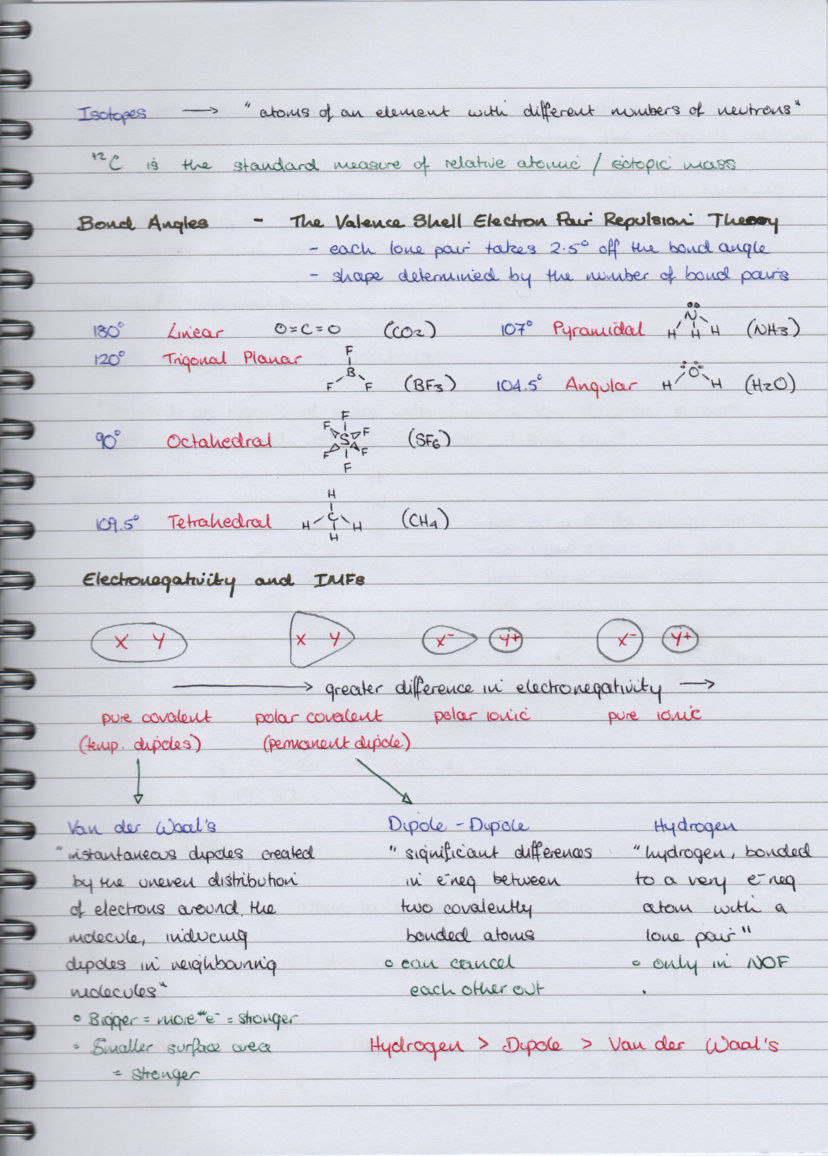 Isotopes → "atoms of an element with different numbers of neutrons"
¹²C is the standard measure of relative atomic / isotopic mass
Bond Angles - The Valence Shell Electron Pair Repulsion Theory
- each lone pair takes 2.5° off the bond angle
- shape determined by the number of bond pairs
180° Linear O=C=O (CO2) 107° Pyramidal N H H H (NH3)
120° Trigonal Planar F B F F (BF3) 104.5° Angular O H H (H2O)
90° Octahedral F F F S F F F (SF6)
109.5° Tetrahedral H H C H H (CH4)
Electronegativity and IMFs
X Y X Y X⁻ Y+ X⁻ Y+
→ greater difference in electronegativity →
pure covalent polar covalent polar ionic pure ionic
(temp. dipoles) (permanent dipole)
Van der Waal's
"instantaneous dipoles created
by the uneven distribution
of electrons around the
molecule, inducing
dipoles in neighbouring
molecules"
• Bigger = more e⁻ = stronger
• Smaller surface area
= stronger
Dipole - Dipole
"significant differences
in e⁻neg between
two covalently
bonded atoms
• can cancel
each other out
Hydrogen
"hydrogen, bonded
to a very e⁻neg
atom with a
lone pair"
• only in NOF
Hydrogen > Dipole > Van der Waal's